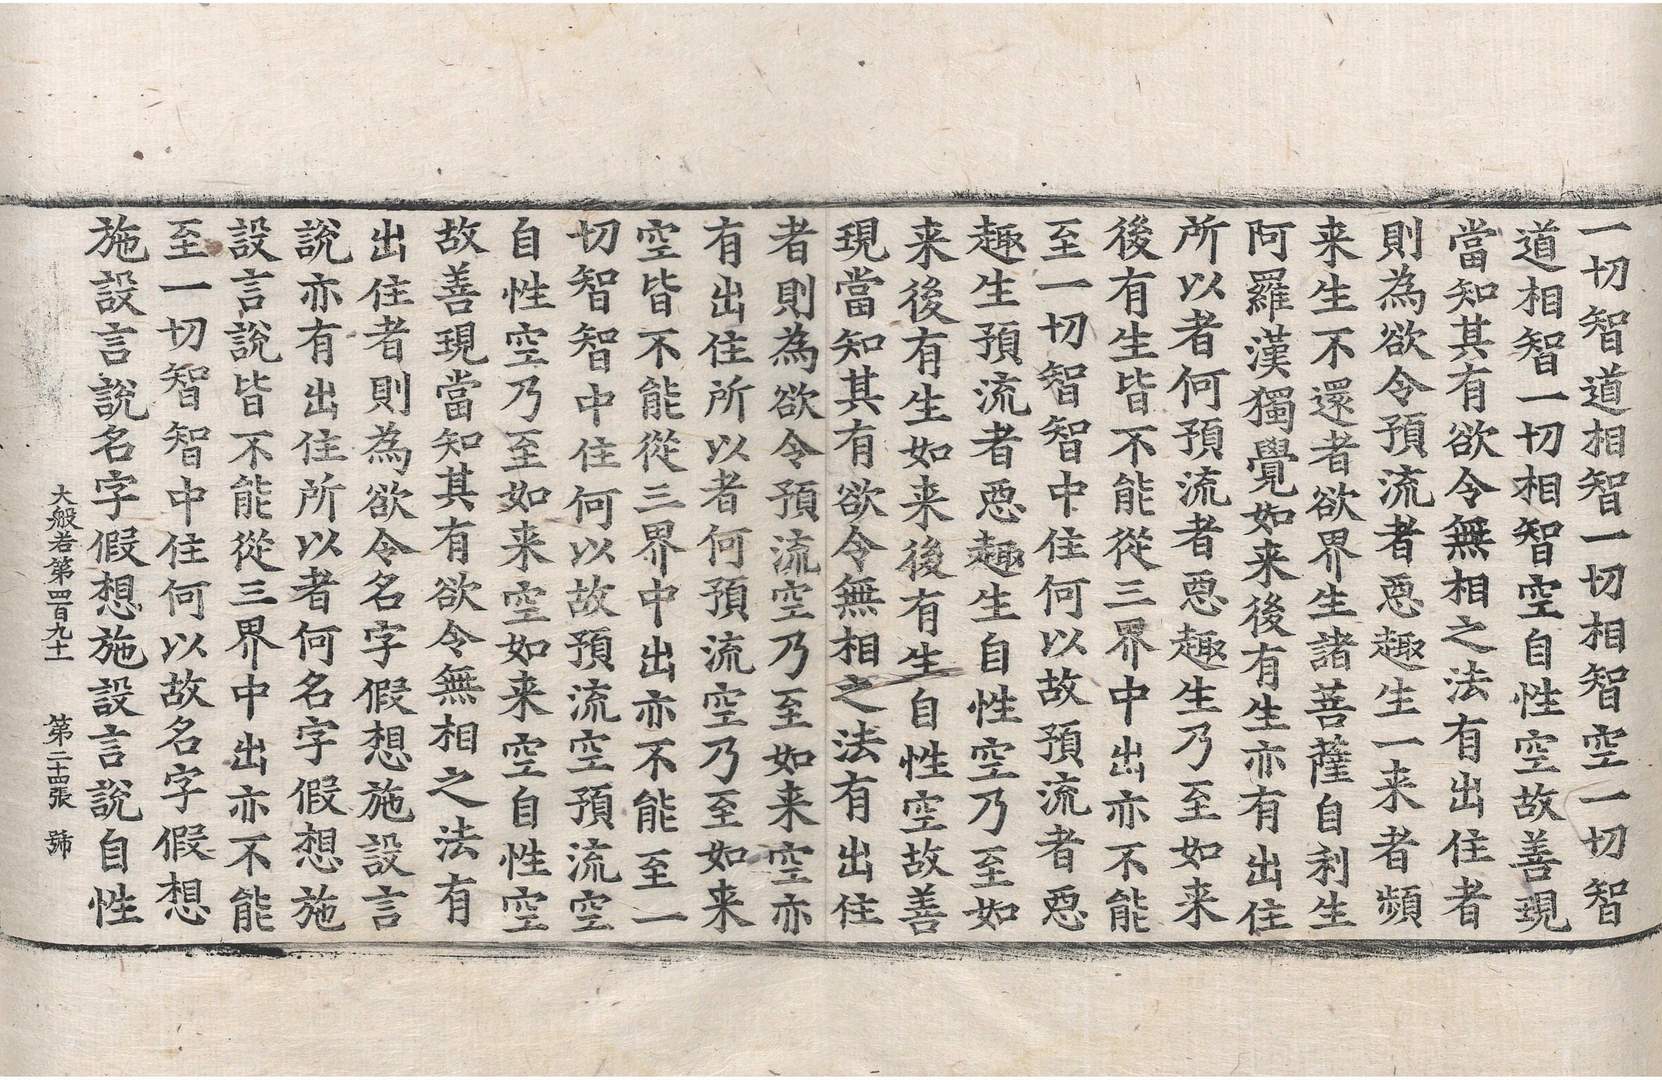 一切智道相智一切相智空一切智
道相智一切相智空自性空故善現
當知其有欲令無相之法有出住者
則為欲令預流者惡趣生一来者頻
来生不還者欲界生諸菩薩自利生
阿羅漢獨覺如来後有生亦有出住
所以者何預流者惡趣生乃至如来
後有生皆不能從三界中出亦不能
至一切智智中住何以故預流者惡
趣生預流者惡趣生自性空乃至如
来後有生如来後有生自性空故善
現當知其有欲令無相之法有出住
者則為欲令預流空乃至如来空亦
有出住所以者何預流空乃至如来
空皆不能從三界中出亦不能至一
切智智中住何以故預流空預流空
自性空乃至如来空如来空自性空
故善現當知其有欲令無相之法有
出住者則為欲令名字假想施設言
說亦有出住所以者何名字假想施
設言說皆不能從三界中出亦不能
至一切智智中住何以故名字假想
施設言說名字假想施設言說自性
大般若第四百九十一 第二十四張 號